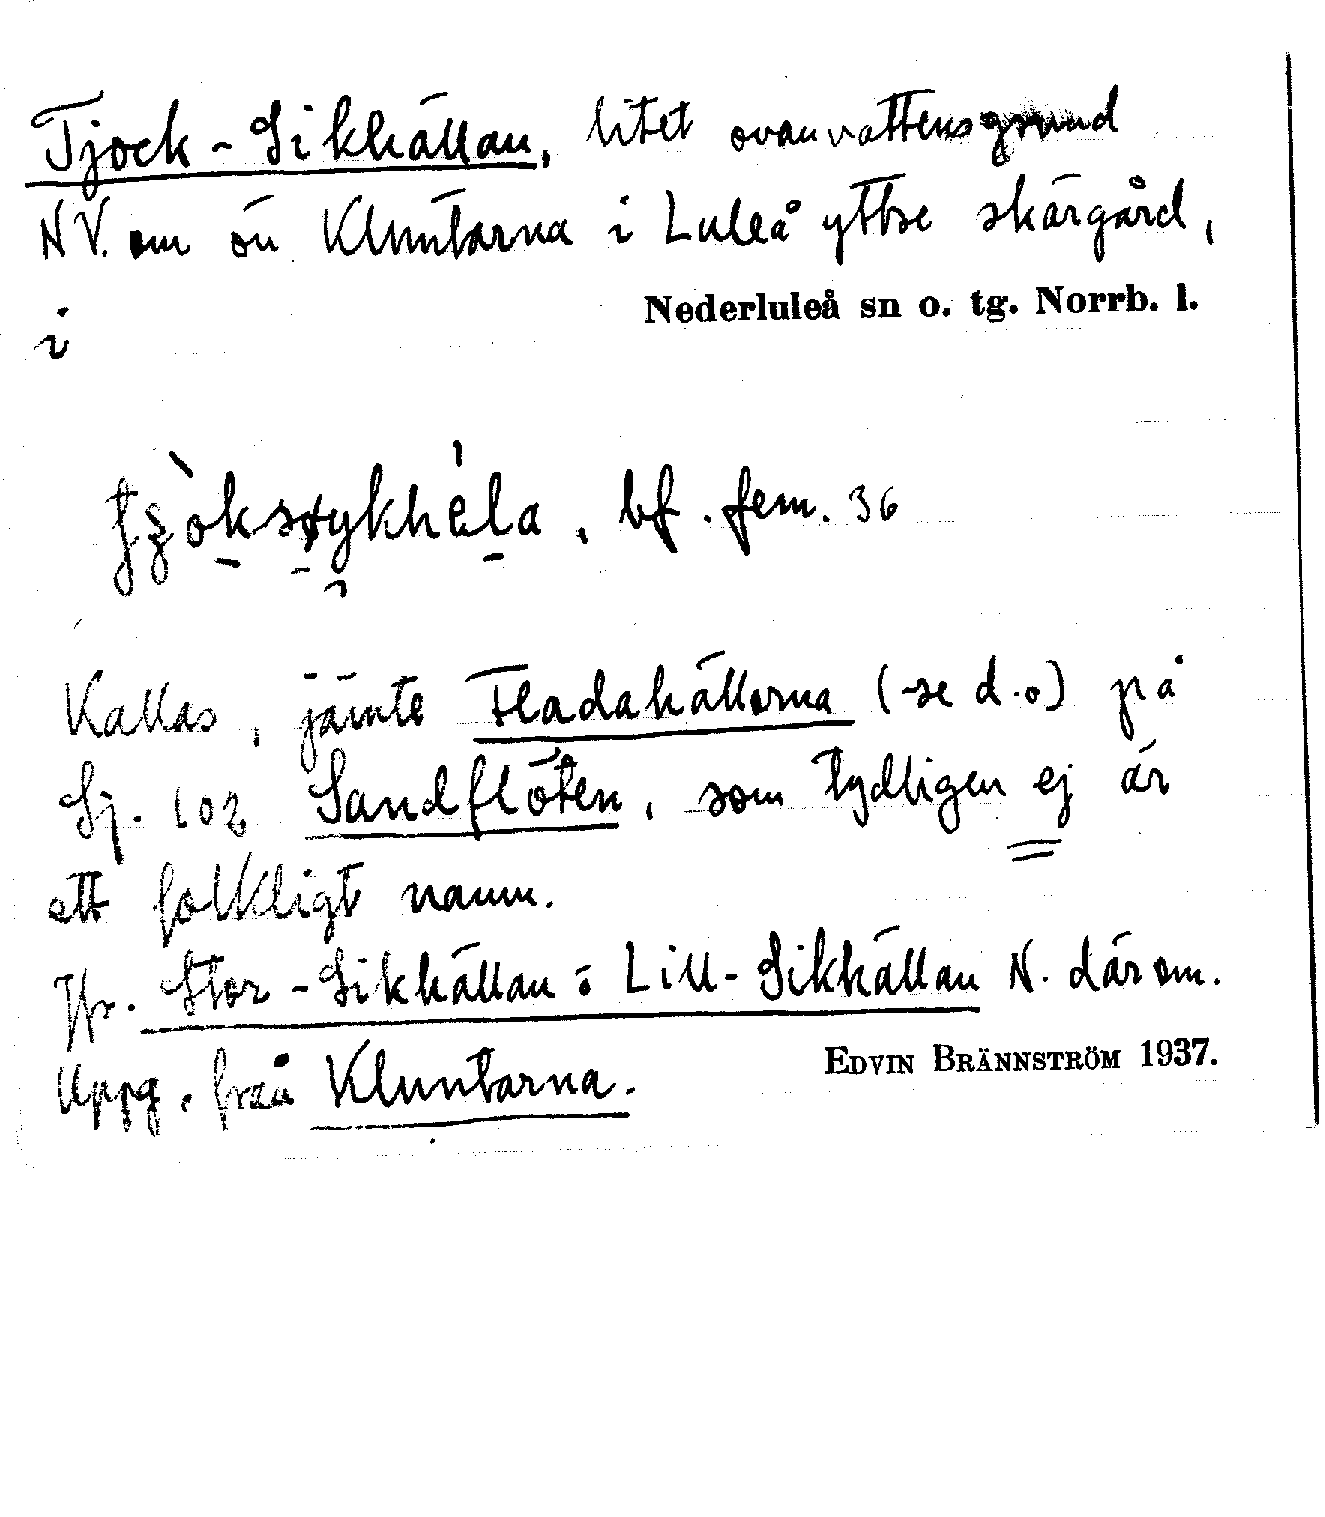 Tjock-Sikhällan, litet ovanvattensgrund
NV. om ön Kluntarna i Luleå yttre skärgård,
i Nederluleå sn o. tg. Norrb. l.
bf. fem. 36
Kallas, jämte Fladahällorna (se d.o) på
Sj. 102 Sandflöten, som tydligen ej är
ett folkligt namn.
Jfr. Stor-Sikhällan o Lill-Sikhällan N. därom.
Uppg. från Kluntarna.
EDVIN BRÄNNSTRÖM 1937.